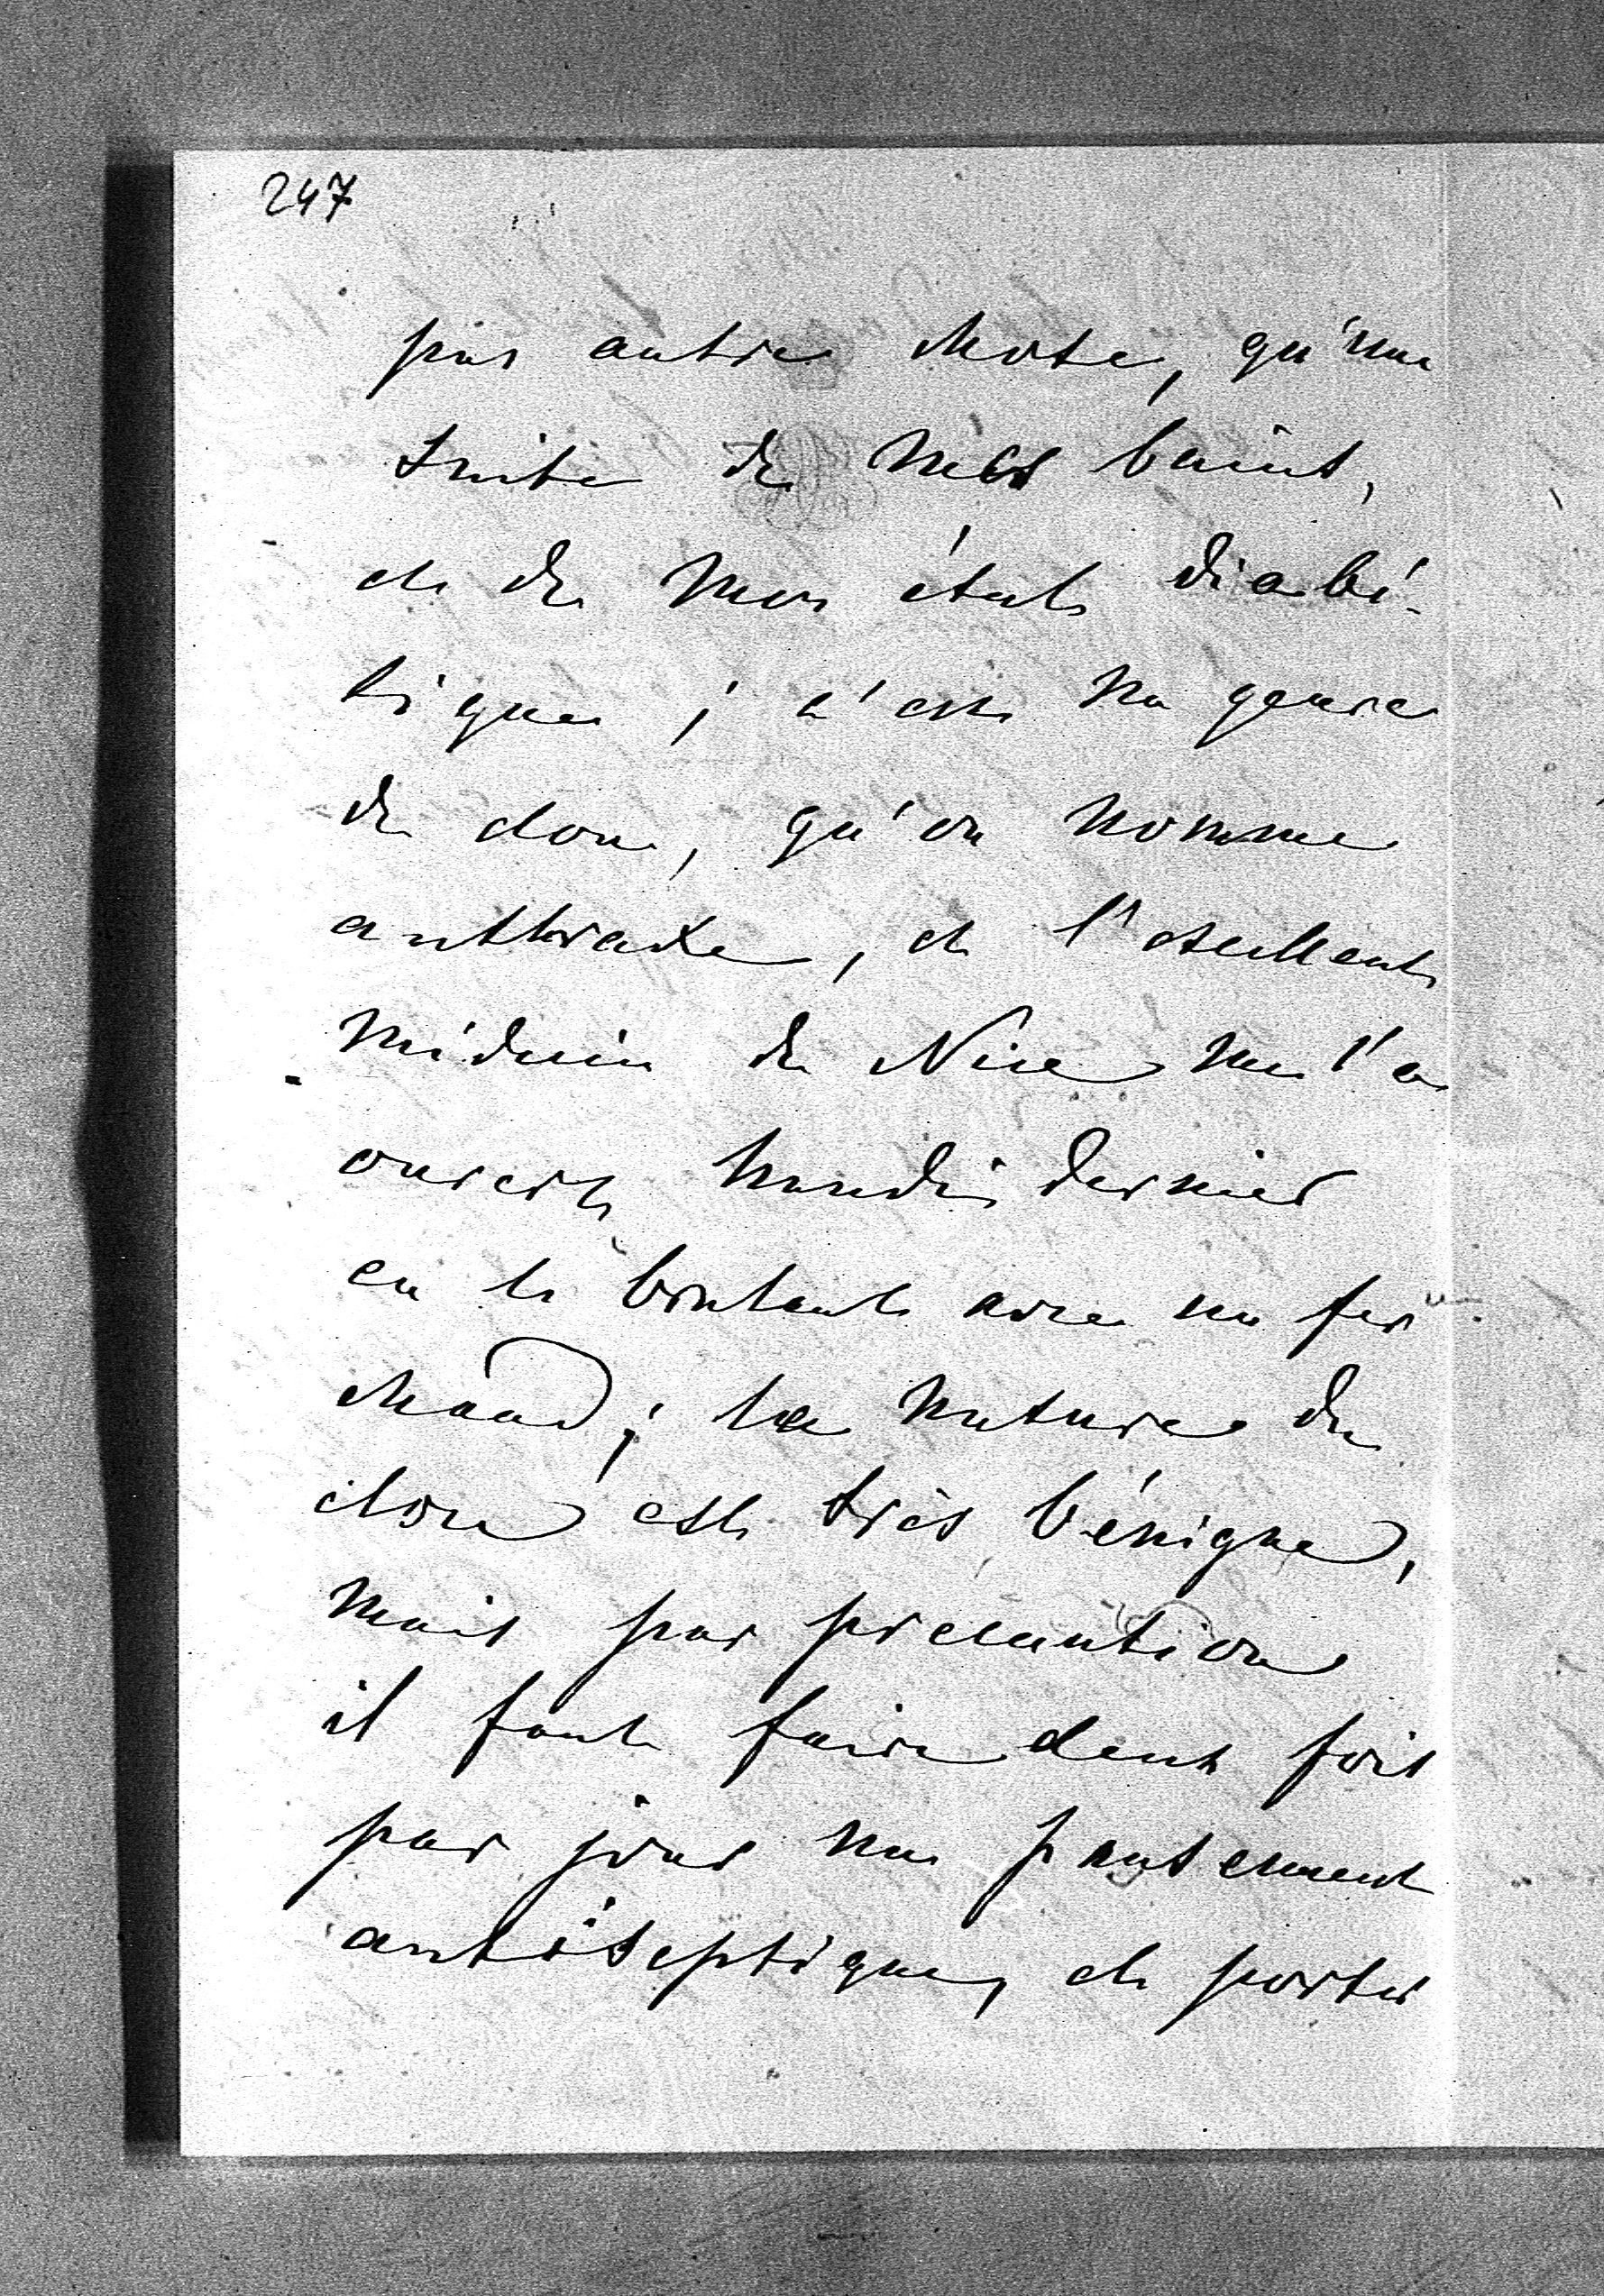 247
pas autre chose, qu'une
suite de mes bains,
et de mon état diabé-
tique ; c'est un genre
de clou, qu'on nomme
anthraxe, et l'excellent
médecin de Nice me l'a
ouvert mardi dernier
en le brulant avec un fer
chaud ; la nature du
clou est très bénigne,
mais par precaution
il faut faire deux fois
par jour un pansement
antiseptique, et porter